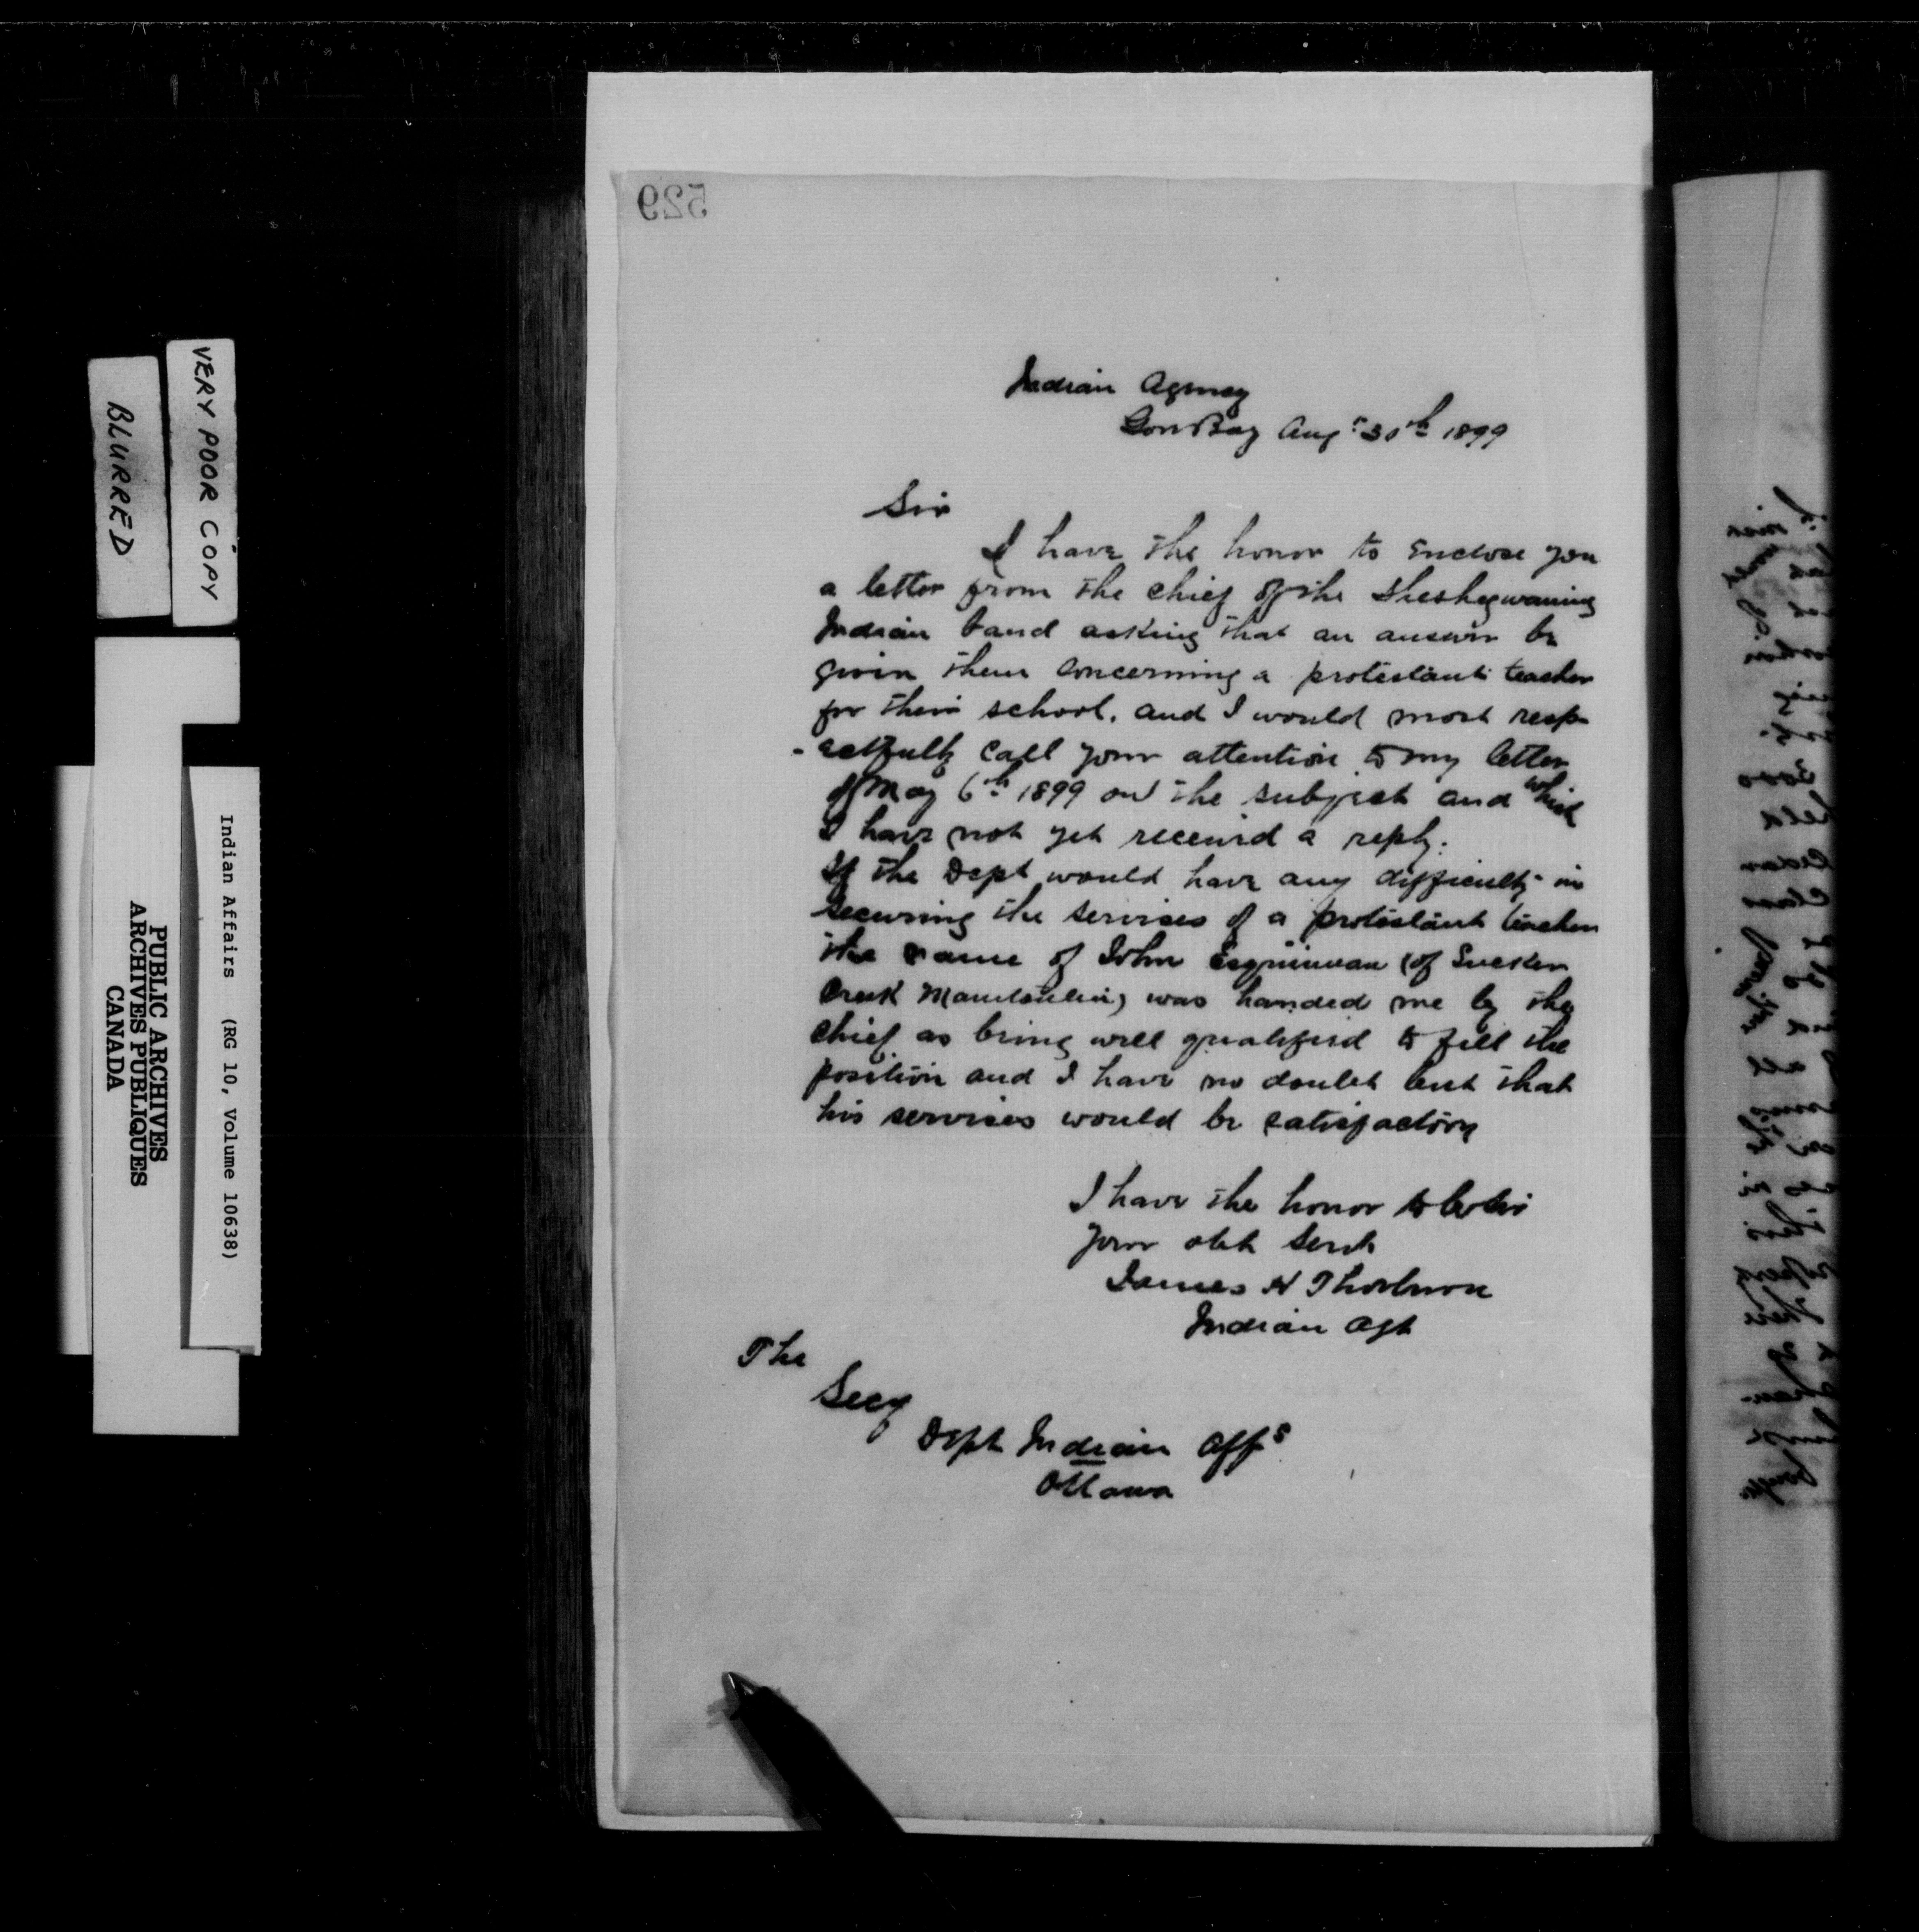 VERY POOR COPY
BLURRED
Indian Affairs (RG 10, Volume 10638)
PUBLIC ARCHIVES
ARCHIVES PUBLIQUES
CANADA
529
Indian Agency
Gore Bay Augt 30th 1899
Sir
I have the honor to enclose you
a letter from the chief of the Sheshegwaning
Indian band asking that an answer be
given them concerning a protestant teacher
for their school, and I would most resp-
-ectfully call your attention to my letter
of May 6th 1899 on the subject and which
I have not yet received a reply.
If the Dept would have any difficulty in
securing the services of a protestant teacher
the name of John Esquimeau (of Sucker
Creek Manitoulin) was handed me by the
chief as being well qualified to fill the
position and I have no doubt but that
his services would be satisfactory
I have the honor to be Sir
your obt Servt
James H Thorburn
Indian Agt
The
Secy
Dept Indian Affs
Ottawa